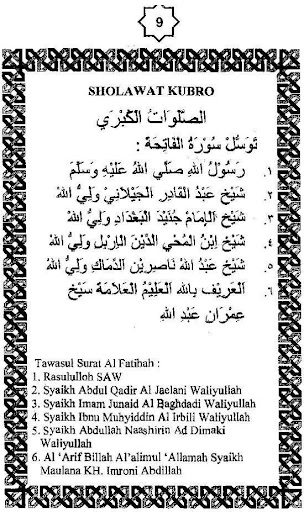 9
SHOLAWAT KUBRO
الصَّلَوَاتُ الْكُبْرَي
تَوَسُّل سُوْرَةُ الْفَاتِحَةْ :
١. رَسُوْلُ اللهِ صَلَّي اللهُ عَلَيْهِ وَسَلَّمَ
٢. شَيْخ عَبْدُ الْقَادِرِ الْجَيْلَانِي وَلِيُّ اللهْ
٣. شَيْخ الْإِمَامْ جُنَيْدِ الْبَغْدَادِ وَلِيُّ اللهْ
٤. شَيْخ اِبْنُ الْمُحْيِ الدِّيْنَ الْإِرْبِلِ وَلِيُّ اللهْ
٥. شَيْخ عَبْدُ اللهْ نَاصِرِيْنِ الدِّمَاكِ وَلِيُّ اللهْ
٦. الْعَرِيْف بِاللهْ الْعَلِيْمُ الْعَلَّامَةُ سَيْخ
عِمْرَانِ عَبْدِ اللهْ
Tawasul Surat Al Fatihah :
1. Rasululloh SAW
2. Syaikh Abdul Qadir Al Jaelani Waliyullah
3. Syaikh Imam Junaid Al Baghdadi Waliyullah
4. Syaikh Ibnu Muhyiddin Al Irbili Waliyullah
5. Syaikh Abdullah Naashirin Ad Dimaki
Waliyullah
6. Al 'Arif Billah Al'alimul 'Allamah Syaikh
Maulana KH. Imroni Abdillah